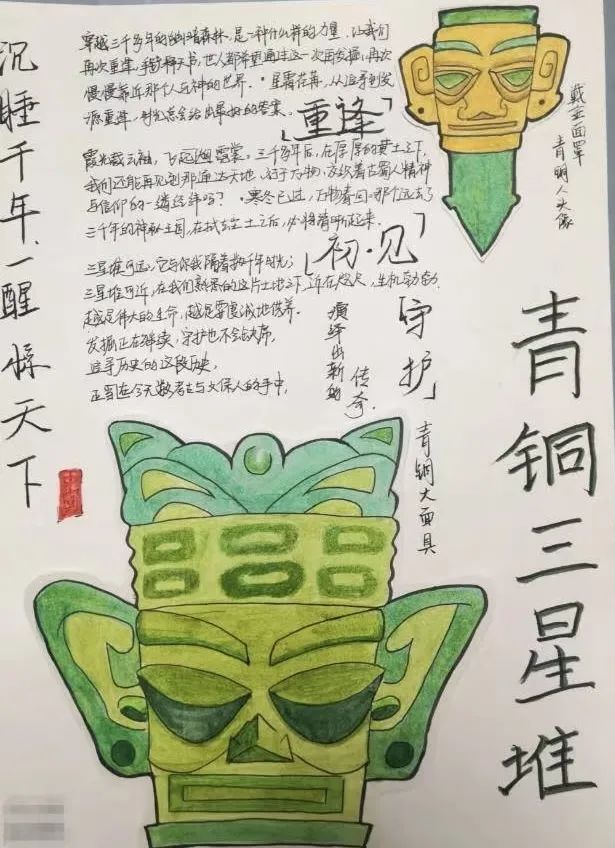 沉睡千年一醒惊天下
穿越三千多年的幽暗森林，是一种什么样的力量，让我们
再次重逢，手捧神天书，世人都希望通过这一次再发掘，再次
慢慢靠近那个人与神的世界。星霜荏苒，从追寻到发
源重逢，时光总会给出最好的答案。
「重逢」
霞光载云袖，飞远翔霓裳。三千多年后，在厚厚的黄土之下，
我们还能再见到那通达天地、 于万物、交织着古蜀人精神
与信仰的一缕经纬吗？寒冬已过，万物春回，那个远去了
三千年的神秘王国，在拭去尘土之后，必将清晰起来。
「初·见」
三星堆可远，它与你我隔着数千年时光；
三星堆可近，在我们熟悉的这片土地之下，近在咫尺，生机勃勃。
越是伟大的生命，越是要虔诚地供养。
发掘正在继续，守护也不会缺席。
追寻历史的这段历史，
正写在今天数考古与文保人的手中，
演绎出新的
传奇。
「守护」
戴金面罩
青铜人头像
青铜大面具
青铜三星堆